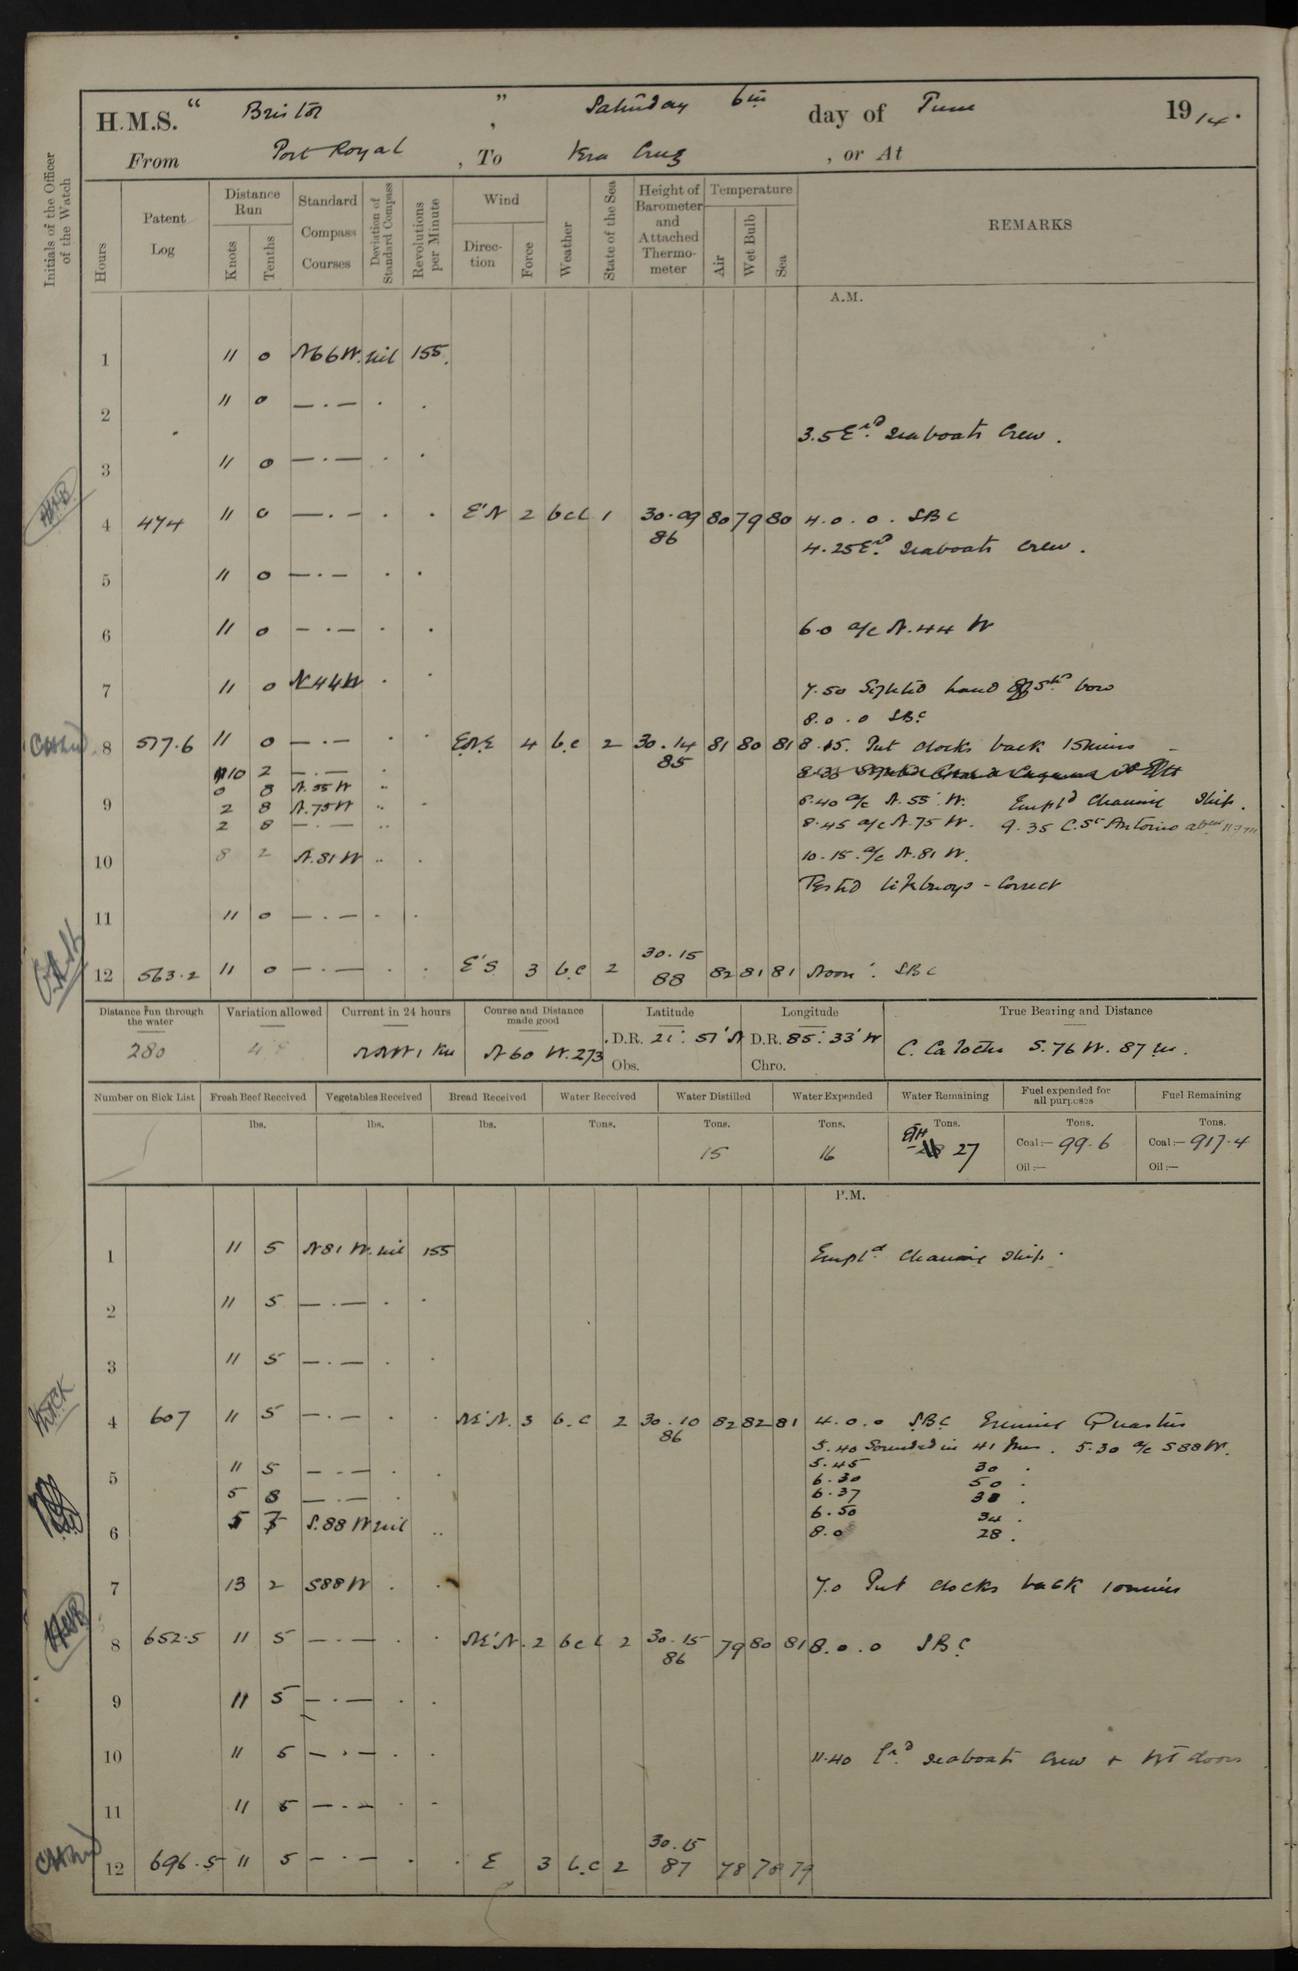 H.M.S. " Bristol " , Saturday 6th day of June 1914.
From Port Royal , To Vera Cruz , or At
Initials of the Officer of the Watch
Hours
Patent Log
Distance Run
Knots
Tenths
Standard Compass Courses
Deviation of Standard Compass
Revolutions per Minute
Wind
Direction
Force
Weather
State of the Sea
Height of Barometer and Attached Thermometer
Temperature
Air
Wet Bulb
Sea
REMARKS
A.M.
1 11 0 N66W. nil 155.
2 11 0 — . — . .
3.5 Exd. Seaboats Crew.
3 11 0 — . — . .
4 474 11 0 — . — . . E'N 2 bcl 1 30.09 80 79 80 4.0.0. SBC
86 4.25 Exd. Seaboats crew.
5 11 0 — . — . .
6 11 0 — . — . . 6.0 a/c N.44 W
7 11 0 N44W . . 7.50 Sighted land off Stbd bow
8.0.0 SBC
8 517.6 11 0 — . — . . ENE 4 b.c 2 30.14 81 80 81 8.15. Put clocks back 15 mins
85
10 2 — . — .
0 8 N.55 W " 8.40 a/c N.55 W. Empld cleaning Ship.
9 2 8 N.75W " .
2 8 — . — " 8.45 a/c N.75 W. 9.35 C. St Antonio abeam
10 8 2 N.81 W " . 10.15. a/c N.81 W.
Tested lifebuoys - Correct
11 11 0 — . — . .
12 563.2 11 0 — . — . . E'S 3 b.c 2 30.15 82 81 81 Noon. SBC
88
Distance run through the water
280
Variation allowed
Current in 24 hours
NNW 1 Kn
Course and Distance made good
N60 W. 273
Latitude
D.R. 21° 51' N
Obs.
Longitude
D.R. 85° 33' W
Chro.
True Bearing and Distance
C. Catoche S.76 W. 87 m.
Number on Sick List
Fresh Beef Received
lbs.
Vegetables Received
lbs.
Bread Received
lbs.
Water Received
Tons.
Water Distilled
Tons.
15
Water Expended
Tons.
16
Water Remaining
Tons.
27
Fuel expended for all purposes
Tons.
Coal:— 99.6
Oil:—
Fuel Remaining
Tons.
Coal:— 917.4
Oil:—
P.M.
1 11 5 N81 W. nil 155 Empld. cleaning Ship.
2 11 5 — . — . .
3 11 5 — . — . .
4 607 11 5 — . — . . NE'N. 3 b.c 2 30.10 82 82 81 4.0.0 SBC Evening Quarters
86
5.40 Sounded in 41 fms. 5.30 a/c S88W.
5 11 5 — . — . . 5.45 30 .
6.30 50 .
5 8 — . — . 6.37 38 .
6.50 34 .
6 S.88 W nil " 8.0 28 .
7 13 2 S88W . . 7.0 Put clocks back 10 mins
8 652.5 11 5 — . — . . NE'N. 2 bcl 2 30.15 79 80 81 8.0.0 SBC
86
9 11 5 — . — . .
10 11 5 — . — . . 11.40 Exd. seaboats crew + WT doors
11 11 5 — . — . .
12 696.5 11 5 — . — . . E 3 b.c 2 30.15 78 78 79
87